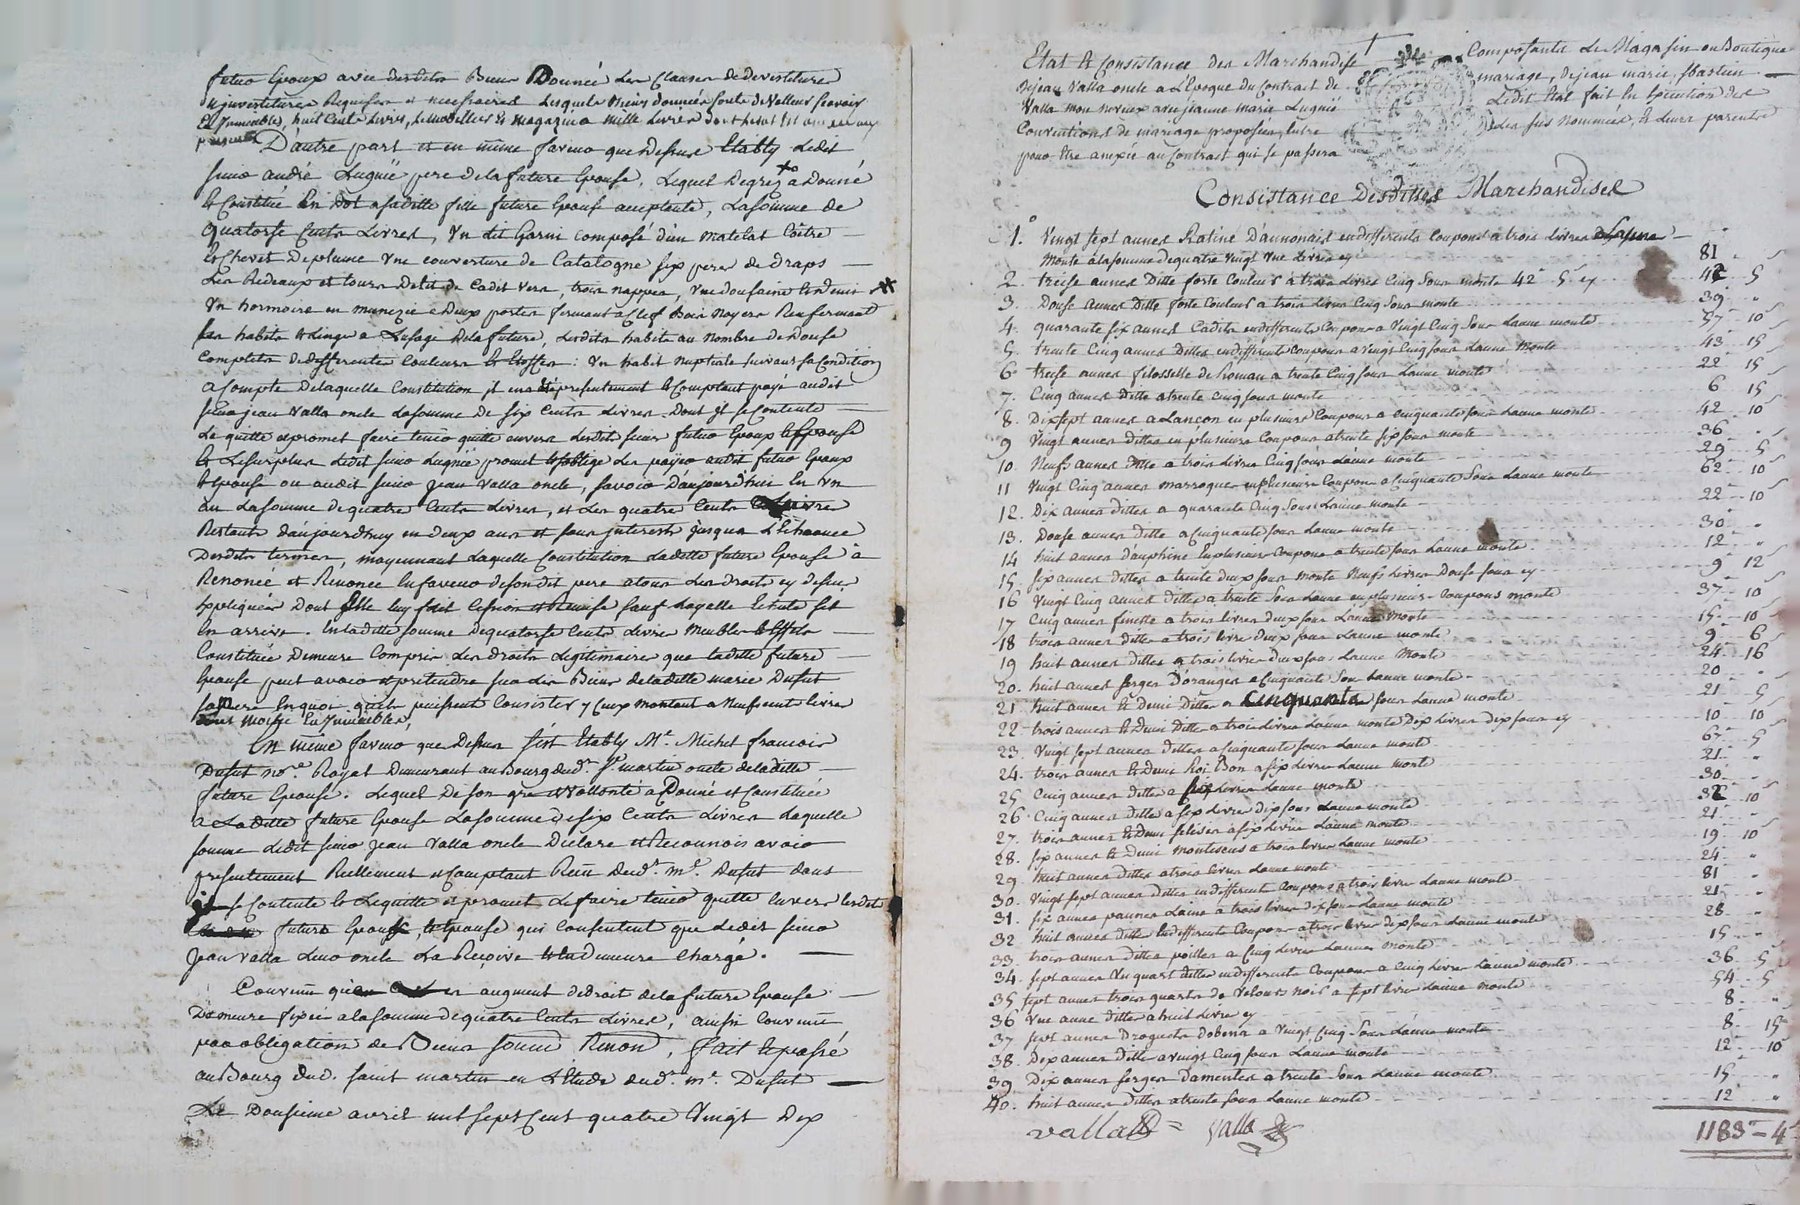 futur Epoux avec desdits Biens Donnée Les Clauses de devestiture
Et Immeubles, huit Cents Livres, Le mobillier Et magazin a mille Livres
D'autre part et en même faveur que Dessus Etably Ledit
sieur andré Lugnié pere de la future Epouse, Lequel De gré a Donné
Et Constitué En Dot a saditte fille future Epouse acceptante, La somme de
quatorse Cents Livres, Un Lit Garni composé d'un matelat Coitre
Et Chevet De plume Une couverture de Catalogne six peres de draps
Les Rideaux et tours De lit de Cadit Vert, trois nappes, Une dousaine
Un hormoire en a Deux portes fermant a Clef Bois Noyer Renfermant
ses habits et Linge a L'usage de la future, Lesdits habits au Nombre de Douse
Complets de differentes Couleurs et Etoffes : Un habit Nuptiale suivant sa Condition
a Compte De laquelle Constitution il en a présentement et Comptant payé audit
sieur jean Valla oncle La somme de six Cents Livres Dont il se Contente
Le quitte et promet faire tenir quitte envers Lesdits sieur futur Epoux et Epouse
Et Le surplus Ledit sieur Lugnié promet et s'oblige Les payer audit futur Epoux
et Epouse ou audit sieur jean Valla oncle, savoir D'aujourd'hui En Un
an La somme de quatre Cents Livres, et Les quatre Cents Livres
Restants d'aujourdhuy en Deux ans et sans interest jusqua L'Echeance
Desdits termes, moyennant Laquelle Constitution Laditte future Epouse à
Renoncé et Renonce En faveur de son dit pere a tous Les droits cy dessus
Expliqués Dont Elle luy fait Cession et Remise sauf Loyalle Echute sil
En arrive. En laditte somme de quatorse Cents Livres Meubles Et Effets
Constitués Demeure Compris Les droits Legitimaires que Laditte future
Epouse peut avoir et pretendre sur Les Biens de laditte marie Dufut
sa Mere En quoi qu'ils puissent Consister y Ceux montant a Neuf cent livres
Moitié En Immeubles,
En même faveur que Dessus s'est Etably Mr. Michel francois
Dufut no.re Royal Demeurant au Bourg dud.t St. martin oncle de laditte
future Epouse. Lequel De son gré et Vollonté a Donné et Constitué
a Laditte future Epouse La somme de six Cents Livres Laquelle
somme Ledit sieur Jean Valla oncle Déclare et Reconnois avoir
presentement Reellement et Comptant Reçu dud.t m.e Dufut dont
il se Contente et Le quitte et promet Le faire tenir quitte Envers Lesdits
futurs Epoux, et Epouse qui Consentent que Ledit sieur
Jean Valla Leur oncle La Reçoive et En Demeure Chargé.
Convenu en augment de droit de la future Epouse
Demeure fixée a la somme de quatre Cents Livres, ainsi Convenu
par obligation de Biens soumis Renon, fait et passé
au Bourg dud. saint martin en L'Etude dud.t m.e Dufut
Le Dousieme avril mil sept Cent quatre Vingt Dix
Etat Et Consistance Des Marchandise Composante Le Magasin ou Boutique
De jean Valla oncle a L'Epoque du Contrat de mariage, De jean marie sbastien
Valla mon neveux avec jeanne Marie Lugnié Ledit Etat fait En Execution des
Conventions de mariage proposées, Entre Les sus Nommées, et Leurs parents
pour Etre anexée au Contrat qui se passera
Consistance Desdittes Marchandises
1.° Vingt sept aunes Ratine D'annonais en differents Coupons a trois Livres
Monte a la somme de quatre Vingt Une Livres cy 81 "
2. treise aunes Ditte forte Couleur a trois Livres Cinq Sous monte 42 5 cy 42 5
3. Douse aunes Ditte forte Couleur a trois Livres Cinq Sous monte 39 "
4. quarante six aunes Cadits en differents Coupons a Vingt Cinq Sous Laune monte 57 10
5. trente Cinq aunes Dittes en differents Coupons a Vingt Cinq sous Laune Monte 43 15
6. treise aunes filosselle de Roman a trente Cinq sous Laune monte 22 15
7. Cinq aunes Ditte a trente Cinq sous monte 6 15
8. Dix sept aunes a Lançon en plusieurs Coupons a Cinquante sous Laune monte 42 10
9 Vingt aunes Dittes en plusieurs Coupons a trente six sous monte 36 "
10. Neufs aunes Ditte a trois Livres Cinq sous Laune monte 29 5
11 Vingt Cinq aunes marroque en plusieurs Coupons a Cinquante Sous Laune monte 62 10
12. Dix aunes Dittes a quarante Cinq Sous Laune monte 22 10
13. Douse aunes Ditte a Cinquante sous Laune monte 30 "
14 huit aunes Dauphine En plusieurs Coupons a trente sous Laune monte 12 "
15. six aunes Dittes a trente deux sous monte Neufs Livres Douse sous cy 9 12
16 Vingt Cinq aunes Dittes a trente Sous Laune en plusieurs Coupons monte 37 10
17 Cinq aunes finette a trois Livres deux sous Laune Monte 15 10
18 trois aunes Ditte a trois Livre Deux sous Laune monte 9 6
19 huit aunes Dittes a trois Livre Deux sous Laune Monte 24 16
20. huit aunes serges D'oranges a Cinquante Sou Laune monte 20 "
21 huit aunes Et Demi Dittes a Cinquante sous Laune monte 21 5
22 trois aunes Et Demi Ditte a trois Livres Laune monte Dix Livres Dix sous cy 10 10
23. Vingt sept aunes Dittes a Cinquante sous Laune monte 67 5
24. trois aunes Et Demi Roi Bon a six Livres Laune monte 21 "
25 Cinq aunes Dittes a six Livres Laune monte 30 "
26 Cinq aunes Ditte a six Livre Dix sous Laune monte 32 10
27. trois aunes Et Demi a six Livre Laune monte 21 "
28. six aunes Et Demi a trois Livres Laune monte 19 10
29. huit aunes Dittes a trois Livres Laune monte 24 "
30. Vingt sept aunes Dittes en differents Coupons a trois livre Laune monte 81 "
31. six aunes Laine a trois Livres dix sou Laune monte 21 "
32 huit aunes Ditte En differents Coupons a trois Livres dix sous Laune monte 28 "
33. trois aunes Dittes a Cinq Livres Laune monte 15 "
34. sept aunes Un quart Dittes en differents Coupons a Cinq Livres Laune monte 36 5
35 sept aunes trois quarts de Velours Noir a sept Livre Laune monte 54 5
36 Une aune Ditte a huit Livre cy 8 "
37 sept aunes Droguets Dobena a Vingt Cinq Sous Laune monte 8 15
38. Dix aunes Ditte a Vingt Cinq sous Laune monte 12 10
39 Dix aunes serges Damentes a trente Sous Laune monte 15 "
40. huit aunes Dittes a trente sous Laune monte 12 "
valla = Valla 1183 - 4